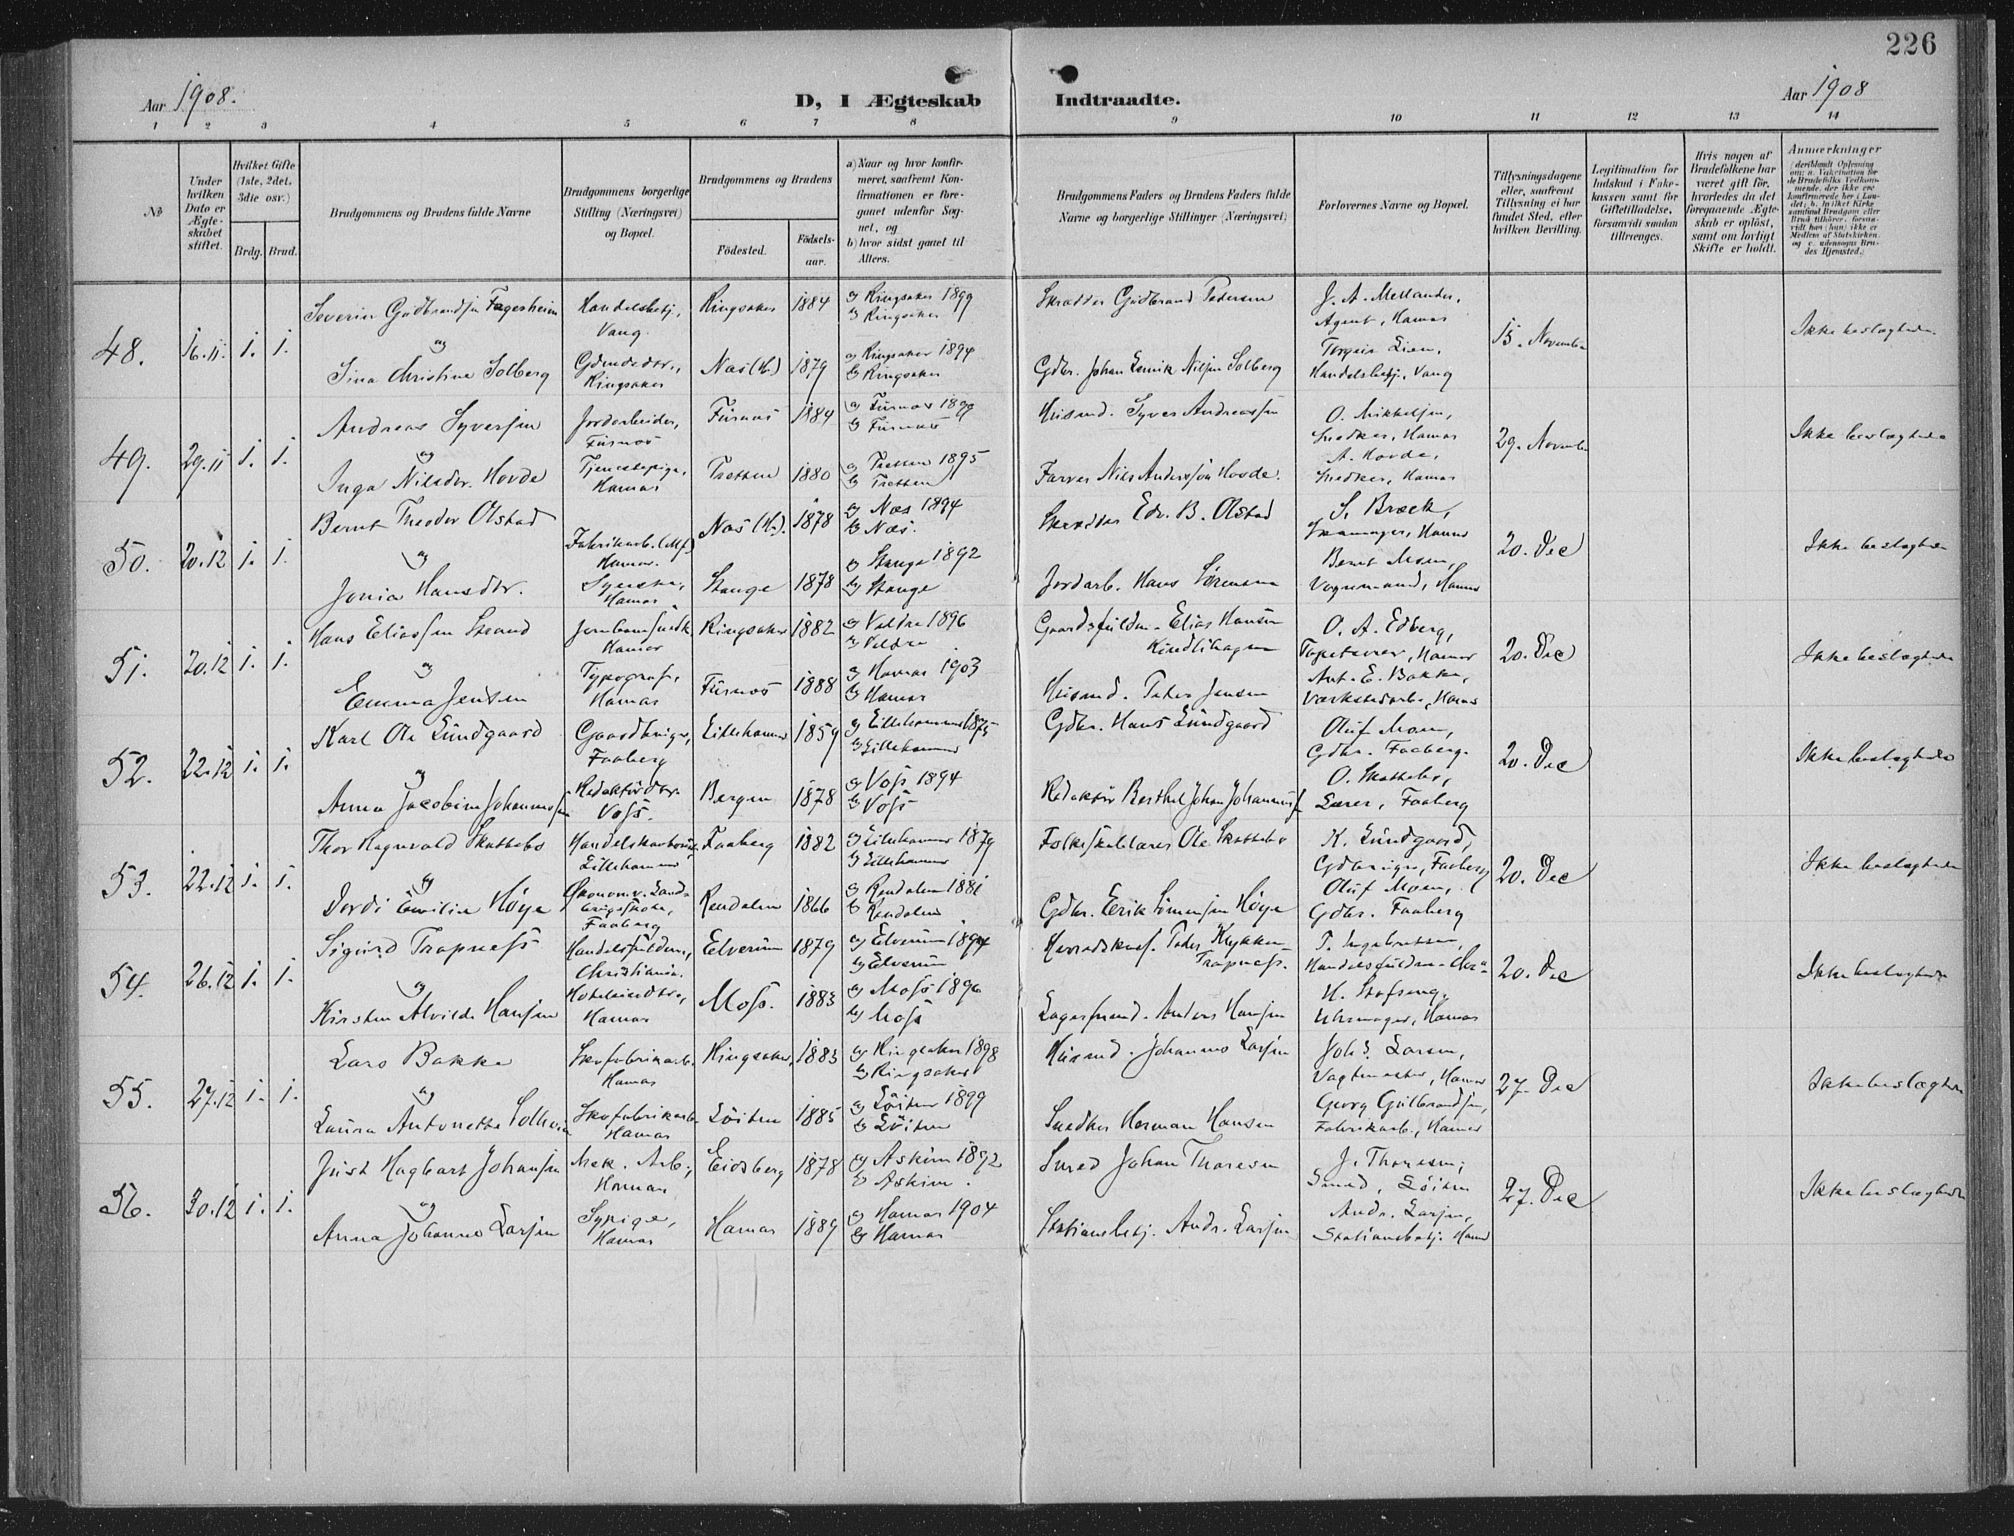 226
Aar 1908. D, I Ægteskab Indtraadte. Aar 1908
1 2 3 4 5 6 7 8 9 10 11 12 13 14
No
Under hvilken Dato er Ægteskabet stiftet.
Hvilket Gifte (1ste, 2det, 3die osv.)
Brdg. Brud.
Brudgommens og Brudens fulde Navne
Brudgommens borgerlige Stilling (Næringsvei) og Bopæl.
Brudgommens og Brudens
Fødested. Fødselsaar.
a) Naar og hvor konfirmeret, saafremt Konfirmationen er foregaaet udenfor Sognet, og
b) hvor sidst gaaet til Alters.
Brudgommens Faders og Brudens Faders fulde Navne og borgerlige Stillinger (Næringsvei)
Forlovernes Navne og Bopæl.
Tillysningsdagene eller, saafremt Tillysning ei har fundet Sted, efter hvilken Bevilling.
Legitimation for Indskud i Enkekassen samt for Giftetilladelse, forsaavidt saadan tiltrænges.
Hvis nogen af Brudefolkene har været gift før, hvorledes da det foregaaende Ægteskab er opløst, samt om lovligt Skifte er holdt.
Anmærkninger
48. 16.11. 1. 1.
Severin Gudbrandsen Fagerheim Handelsbetj., Vang. Ringsaker 1884 a) Ringsaker 1899 b) Ringsaker
Skrædder Gudbrand Pedersen
og
Sina Christine Solberg Gdmdsdtr., Ringsaker Næs (H.) 1879 a) Ringsaker 1894 b) Ringsaker
Gdbr. Johan Enrik Nilsen Solberg
J. A. Mellander, Agent, Hamar
Torgeir Lien, Handelsbetj., Vang
15. November
Ikke beslægtede
49. 29.11 1. 1.
Andreas Syversen Jordarbeider, Furnæs Furnæs 1884 a) Furnæs 1899 b) Furnæs
Husmd. Syver Andreassen
og
Inga Nilsdtr. Hovde Tjenestepige, Hamar Tretten 1880 a) Tretten 1895 b) Tretten
Farver Nils Anderssøn Hovde.
O. Mikkelsen, Snedker, Hamar
A. Hovde, Snedker, Hamar
29. November
Ikke beslægtede
50. 20.12 1. 1.
Bernt Theodor Olstad Fabrikarb. (Mf) Hamar. Næs (H.). 1878 a) Næs 1894 b) Næs.
Skrædder Edv. B. Olstad
og
Jonia Hansdtr. Syerske, Hamar Stange 1878 a) Stange 1892 b) Stange
Jordarb. Hans Sørensen
S. Bræck, Hamar
Bernt Moen, Vognmand, Hamar
20. Dec
Ikke beslægtede
51. 20.12 1. 1.
Hans Eliassen Strand Jernbansnedk. Hamar Ringsaker 1882 a) Veldre 1896 b) Veldre
Gaardsfuldm. Elias Hansen Kindlihagen
og
Emma Jensen Typograf, Hamar Furnæs 1888 a) Hamar 1903 b) Hamar
Husmd. Peder Jensen
O. A. Edberg, Tapetserer, Hamar
Ant. E. Bakke, Værkstedarb., Hamar
20. Dec
Ikke beslægtede
52. 22.12 1. 1.
Karl Ole Lundgaard Gaardbruger, Faaberg Lillehammer 1859 a) Lillehammer 1875 b) Lillehammer
Gdbr. Hans Lundgaard
og
Anna Jacobine Johannessen Redaktørdtr. Voss. Bergen 1878 a) Voss 1894 b) Voss
Redaktør Berthel Johan Johannessen
Oluf Moen, Gdbr. Faaberg.
O. Skattebo, Lærer, Faaberg
20. Dec
Ikke beslægtede
53. 22.12 1. 1.
Thor Ragnvald Skattebo Lillehammer Faaberg 1882 a) Lillehammer 1879 b) Lillehammer
Folkeskolelærer Ole Skattebo
og
Dordi Emilie Høye Økonom v. Landbrugsskole, Faaberg Rendalen 1866 a) Rendalen 1881 b) Rendalen
Gdbr. Erik Simensen Høye
K. Lundgaard, Gdbruger, Faaberg
Oluf Moen, Gdbr. Faaberg
20. Dec
Ikke beslægtede
54. 26.12 1. 1.
Sigurd Trapness Handelsfuldm., Christiania. Elverum 1879 a) Elverum 1894 b) Elverum
Herredskass. Peder Kykken Trapness.
og
Kirsten Alvilde Hansen Hamar Moss. 1883 a) Moss 1896 b) Moss
Lagermand. Anders Hansen
P. Ingebretsen, Handelsfuldm. Chra
H. Stafseng, Uhrmager, Hamar
20. Dec
Ikke beslægtede
55. 27.12 1. 1.
Lars Bakke Skofabrikarb. Hamar Ringsaker, 1883 a) Ringsaker 1898 b) Ringsaker
Husmd. Johannes Larsen
og
Laura Antonette Solheim Skofabrikarb. Hamar Löiten 1885 a) Löiten 1899 b) Löiten
Snedker Herman Hansen
Johs. Larsen, Vagtmester, Hamar
Georg Gulbrandsen, Fabrikarb., Hamar
27. Dec
Ikke beslægtede
56. 30.12 1. 1.
Just Hagbart Johansen Mek. Arb., Hamar Eidsberg 1878 a) Askim 1892 b) Askim.
Smed Johan Thoresen
og
Anna Johanne Larsen Sypige, Hamar Hamar 1889 a) Hamar 1904 b) Hamar
Stationsbetj. Andr. Larsen
J. Thoresen, Smed, Löiten
Andr. Larsen, Stationsbetj. Hamar
27. Dec
Ikke beslægtede